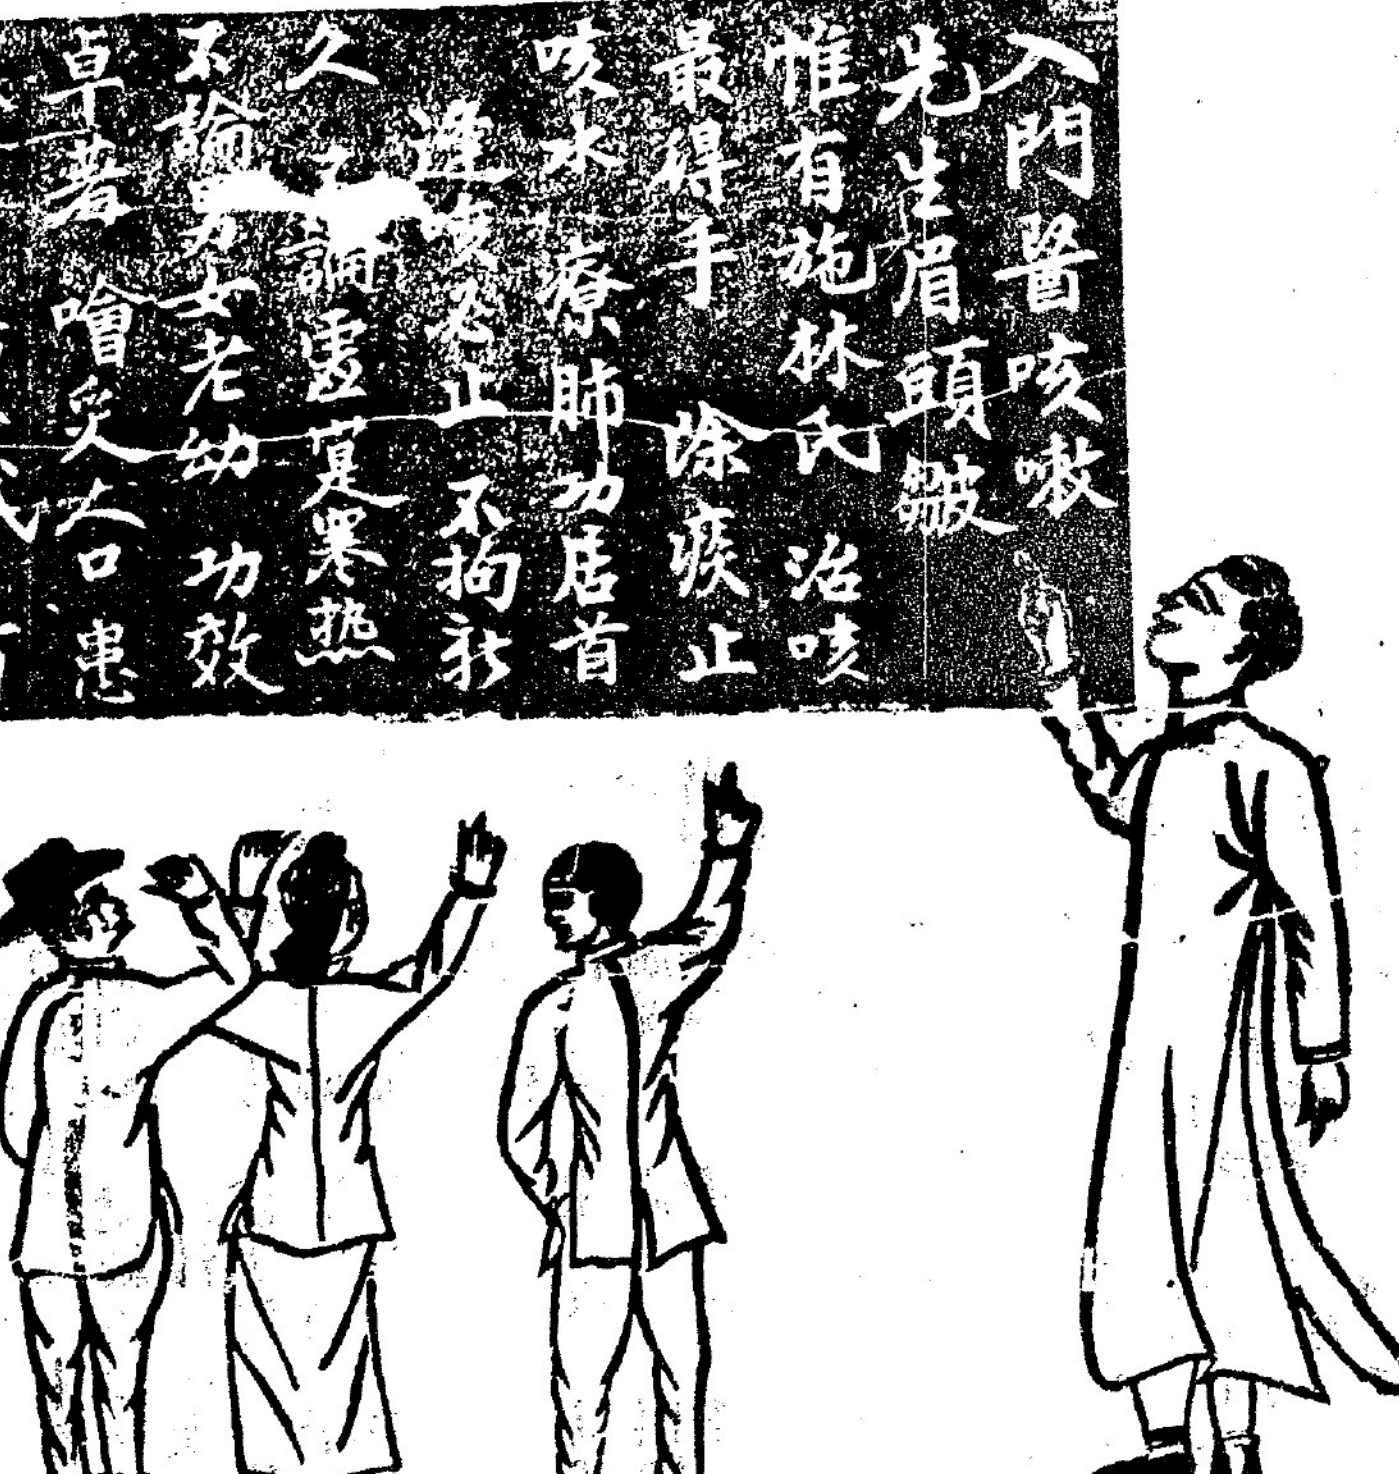 入門醫咳嗽
先生眉頭皺
惟有施林氏 治咳
最得手 除痰止
咳水 療肺功居首
逢咳必止 不拘新
久 不論虛寔寒热
不論男女老幼 功效
卓著 噲受人口患